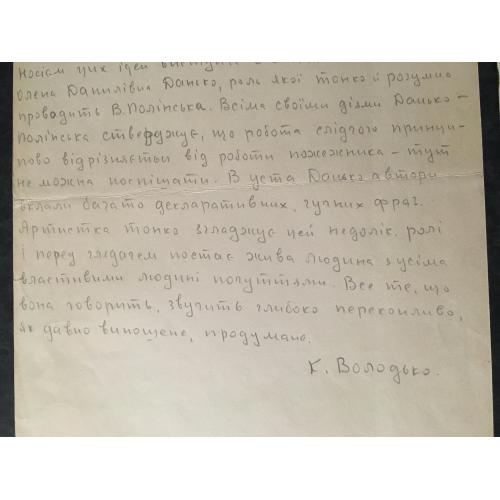 носіям цих ідей виступає
Олена Данилівна Данько, роль якої тонко й розумно
проводить В. Полінська. Всіма своїми діями Данько –
Полінська стверджує, що робота слідчого принци-
пово відрізняється від роботи пожежника – тут
не можна поспішати. В уста Данько автори
вклали багато декларативних, гучних фраз.
Артистка тонко згладжує цей недолік ролі
і перед глядачем постає жива людина з усіма
властивими людині почуттями. Все те, що
вона говорить, звучить глибоко переконливо,
як давно виношене, продумане.
К. Володько.